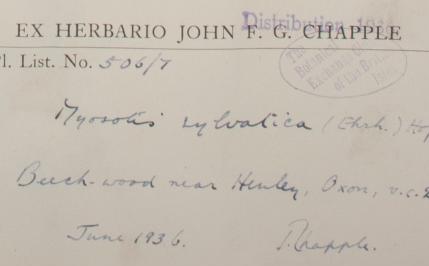 Distribution 19
EX HERBARIO JOHN F. G. CHAPPLE
l. List. No. 506/7
The
Botanical
Exchange
of the British
Isles
Myosotis sylvatica (Ehrh.) Ho
Beech-wood near Henley, Oxon, v.c.
June 1936. J. Chapple.